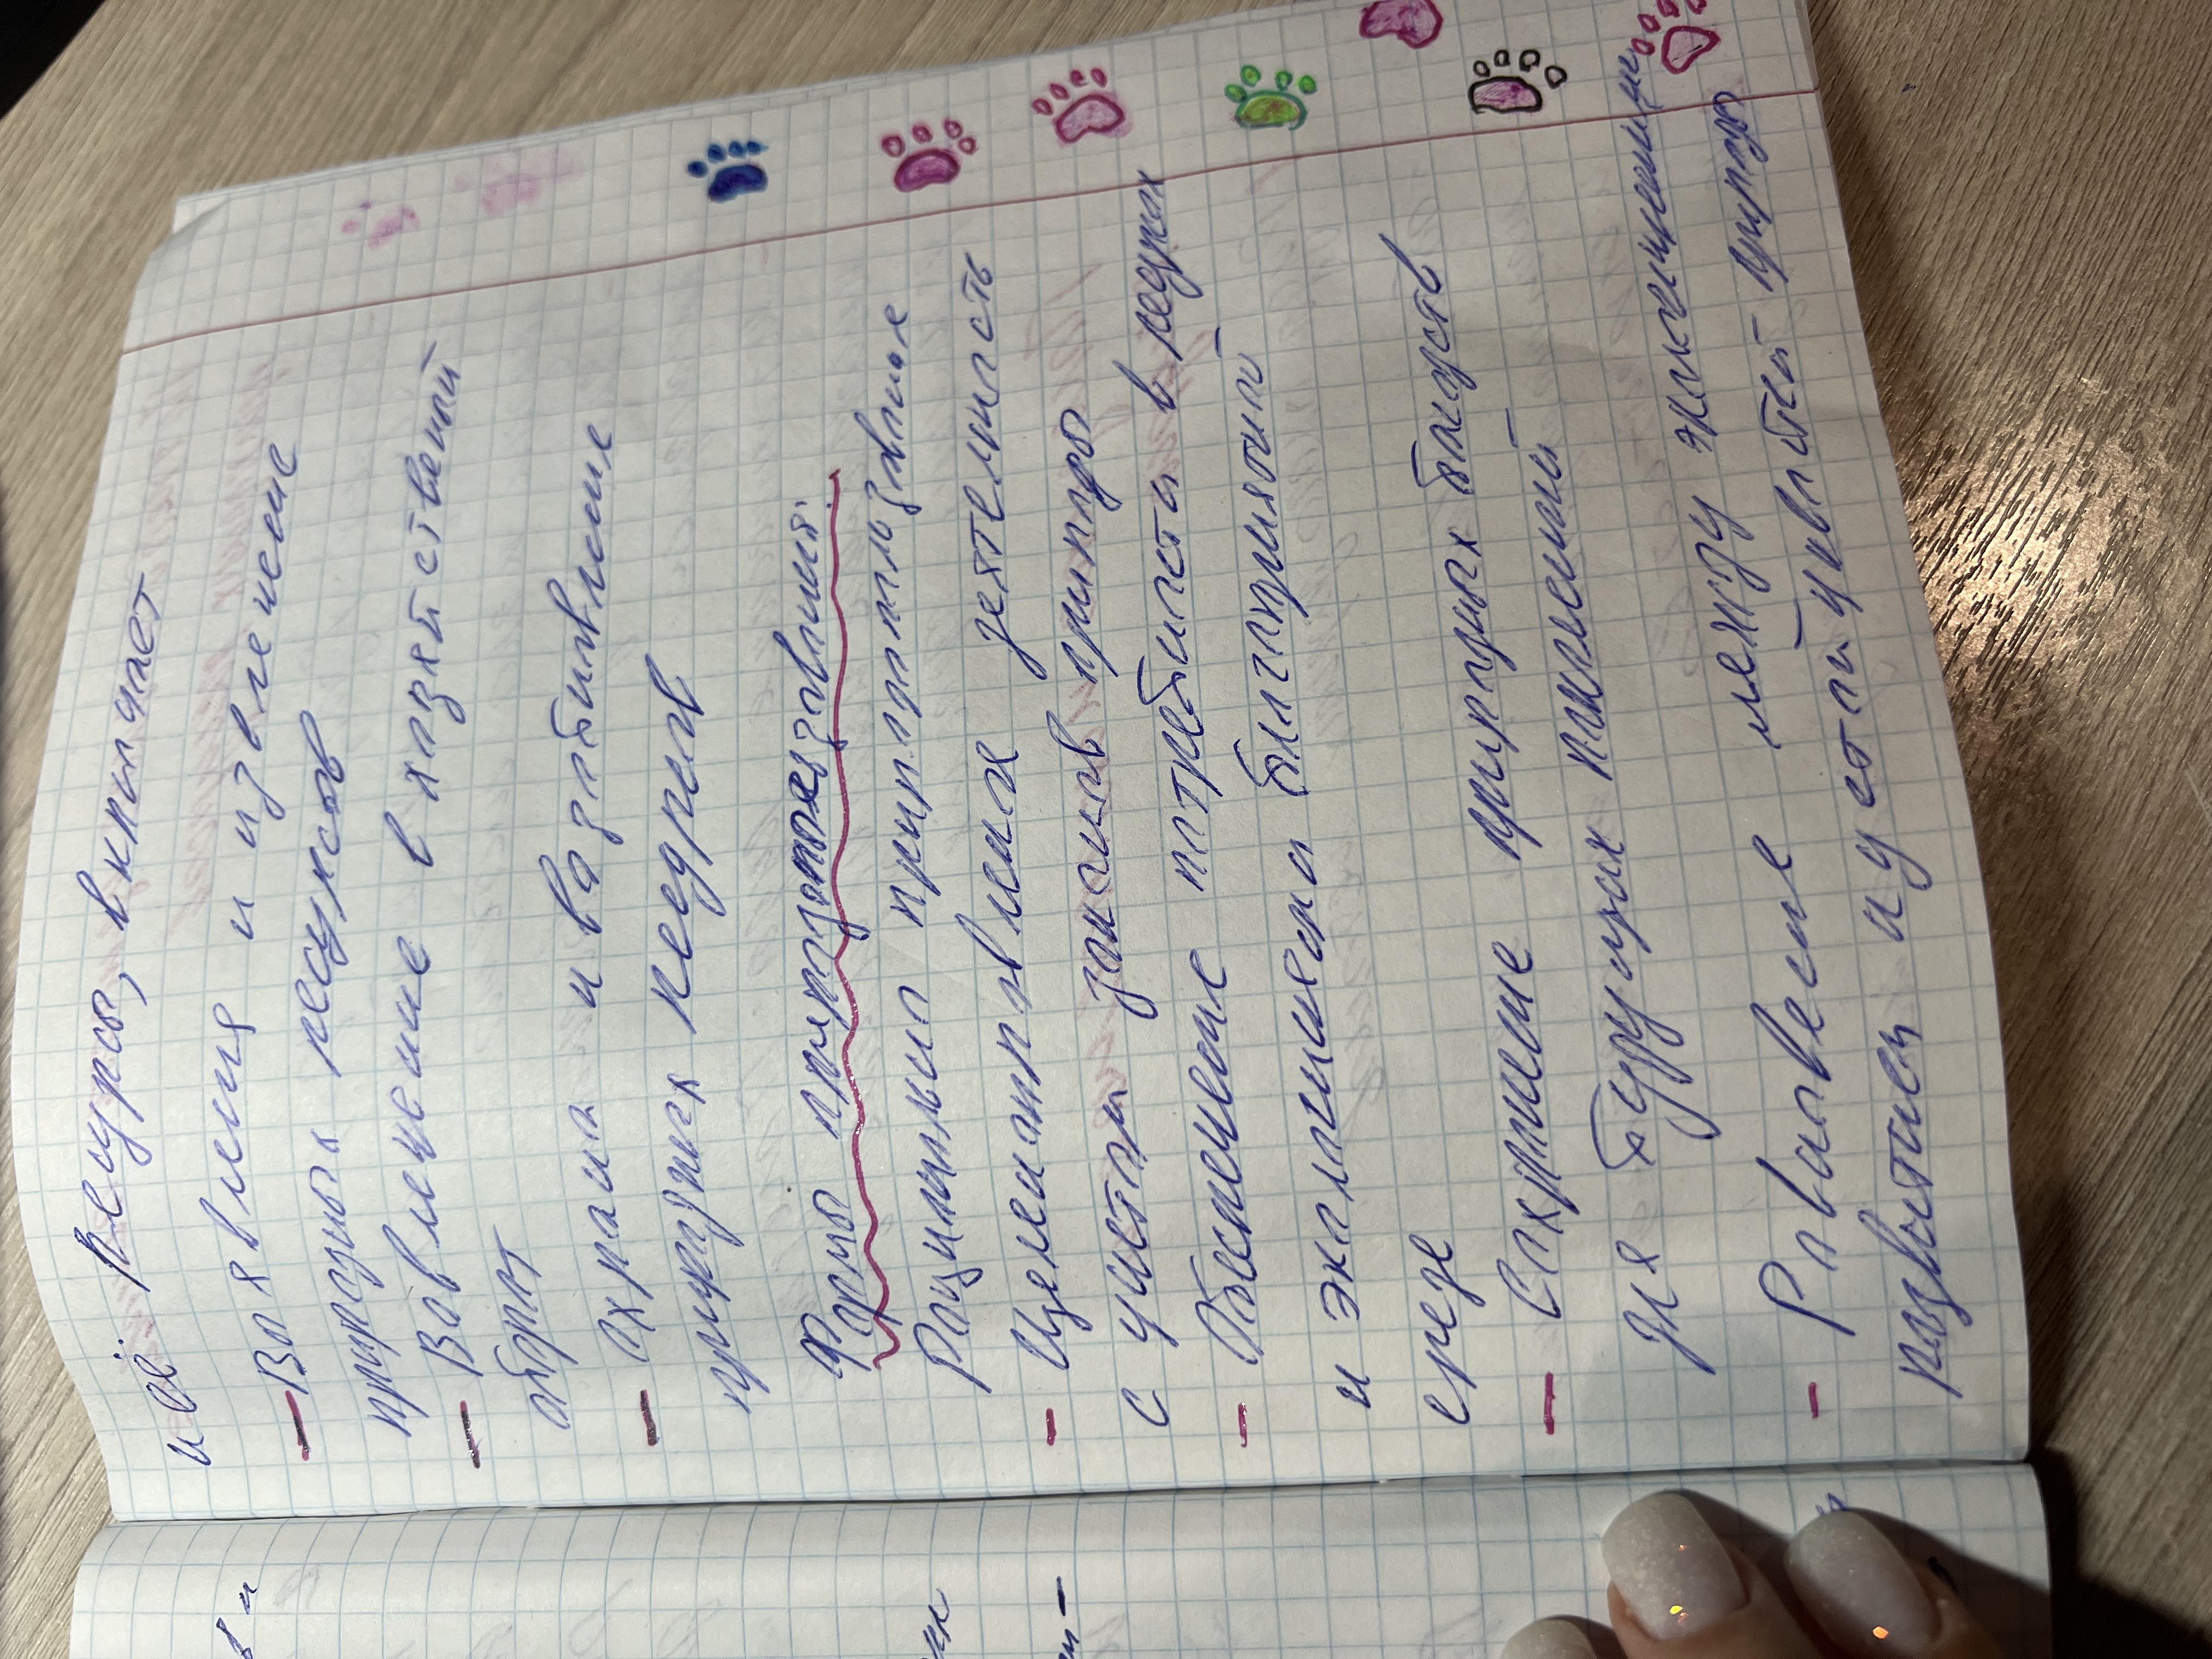 и её ресурсы, включает
— Воявления и извлечение
природных ресурсов
— Вовлечение в хозяйственый
оборот
— охрана и вазобновление
природных недров
Формы природозпоьзования:
Рационально природопользование
— Целенаправленое деятельность
с учетом законов природы
— Обеспечение потребности в ведрах
и экологически благоприятной
среде
— Сохранение природных богатств
для будущих поколений
— Равновесие между экологическим
развитием и устойчивостью природы